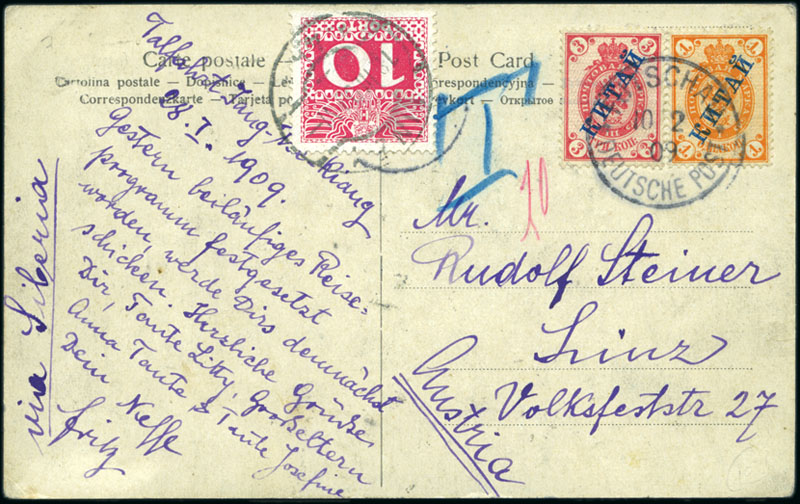 Carte postale
Post Card
Cartolina postale — Dopisnice — Le
respondencyjna
Correspondenzkarte — Tarjeta po
evkort — Открытое
10
3 3
КИТАЙ
3 3
1 1
КИТАЙ
1 1
10 2
09
DEUTSCHE POST
T
10
via Siberia
28. I. 1909.
Gestern beiläufiges Reise=
programm festgesetzt
worden, werde Dirs demnächst
schicken. Herzliche Grüße
Dir, Tante Litty, Großeltern
Anna Tante & Tante Josefine
Dein Neffe
Fritz
Mr.
Rudolf Steiner
Linz
Volksfeststr 27
Austria